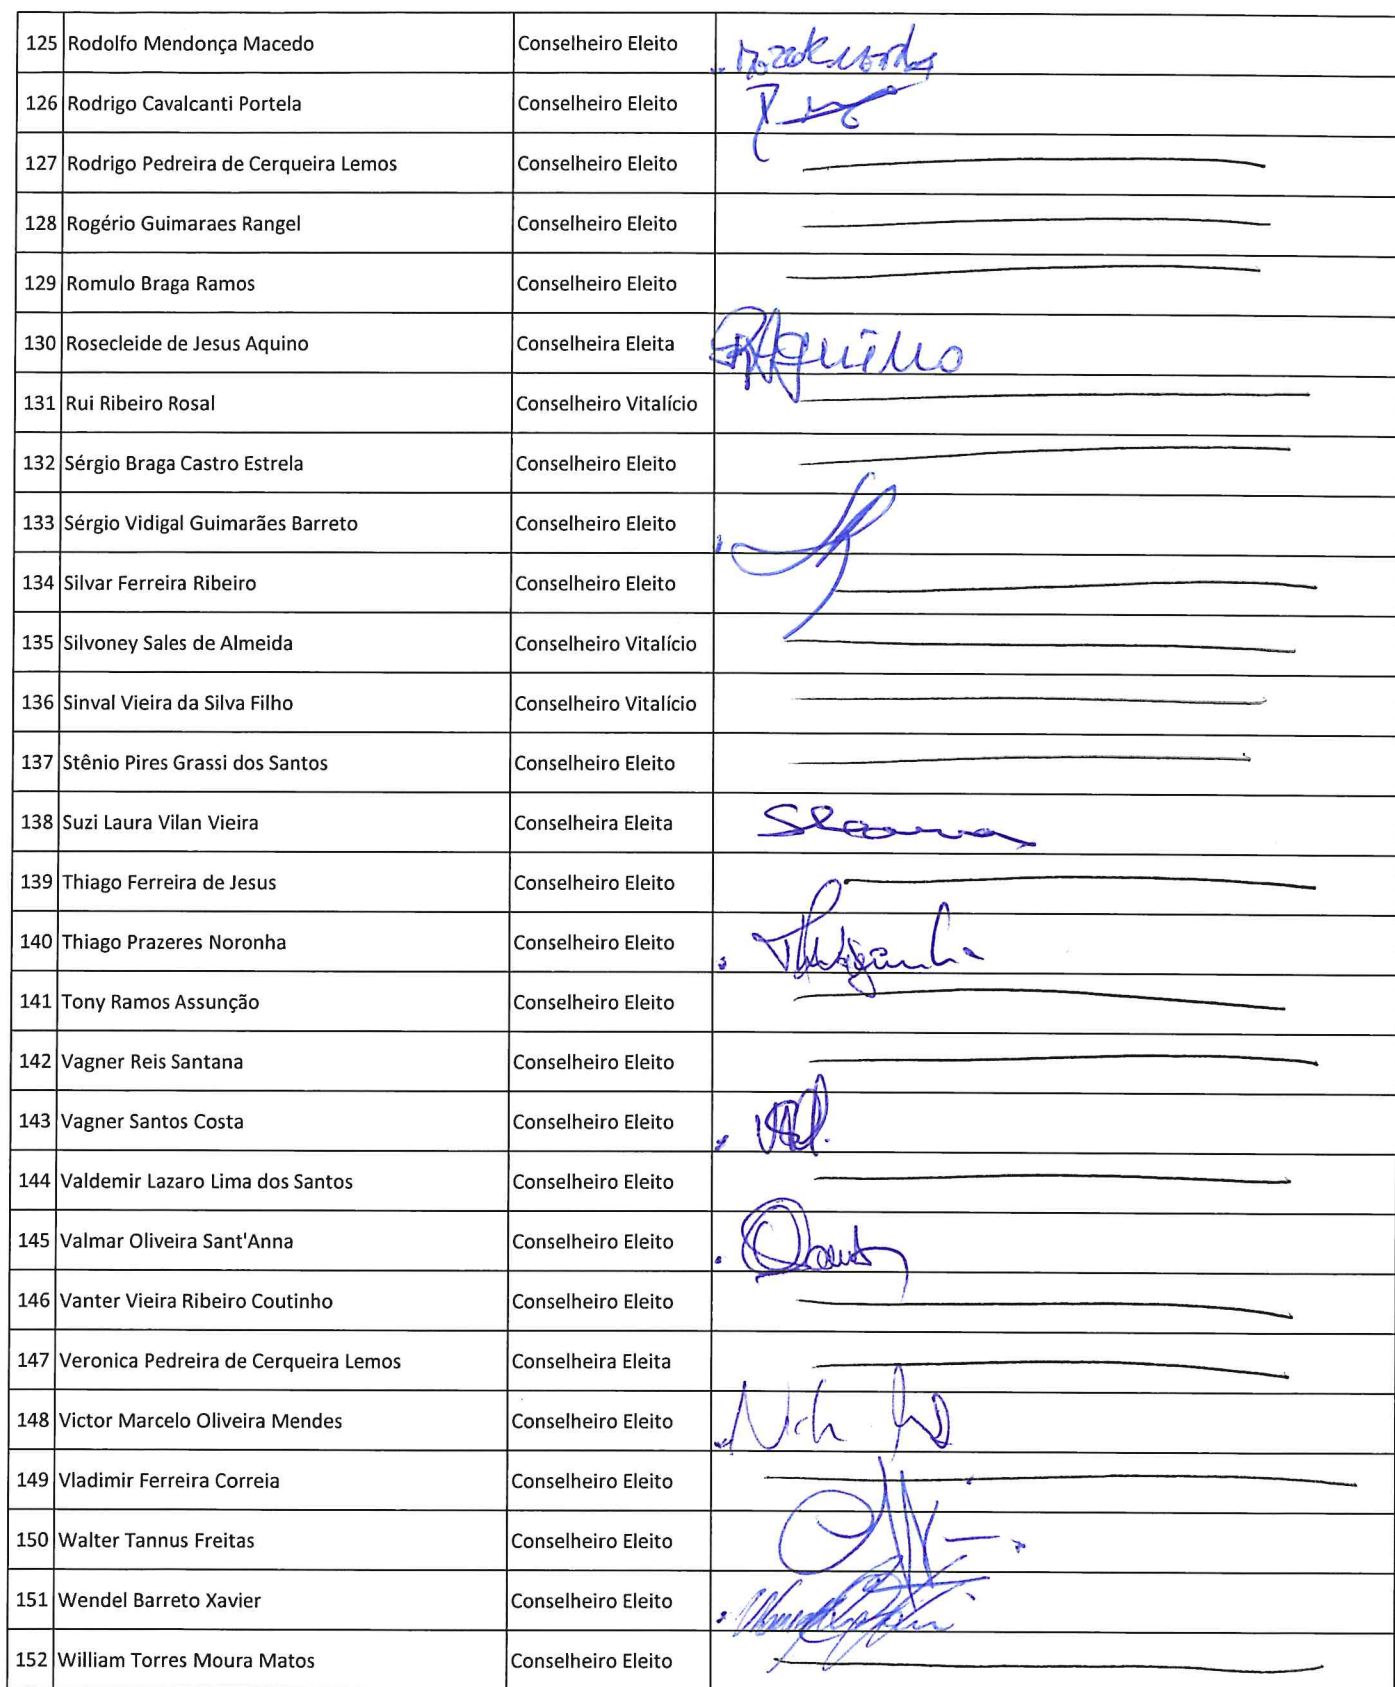 125 Rodolfo Mendonça Macedo Conselheiro Eleito
126 Rodrigo Cavalcanti Portela Conselheiro Eleito
127 Rodrigo Pedreira de Cerqueira Lemos Conselheiro Eleito
128 Rogério Guimaraes Rangel Conselheiro Eleito
129 Romulo Braga Ramos Conselheiro Eleito
130 Rosecleide de Jesus Aquino Conselheira Eleita
131 Rui Ribeiro Rosal Conselheiro Vitalício
132 Sérgio Braga Castro Estrela Conselheiro Eleito
133 Sérgio Vidigal Guimarães Barreto Conselheiro Eleito
134 Silvar Ferreira Ribeiro Conselheiro Eleito
135 Silvoney Sales de Almeida Conselheiro Vitalício
136 Sinval Vieira da Silva Filho Conselheiro Vitalício
137 Stênio Pires Grassi dos Santos Conselheiro Eleito
138 Suzi Laura Vilan Vieira Conselheira Eleita
139 Thiago Ferreira de Jesus Conselheiro Eleito
140 Thiago Prazeres Noronha Conselheiro Eleito
141 Tony Ramos Assunção Conselheiro Eleito
142 Vagner Reis Santana Conselheiro Eleito
143 Vagner Santos Costa Conselheiro Eleito
144 Valdemir Lazaro Lima dos Santos Conselheiro Eleito
145 Valmar Oliveira Sant'Anna Conselheiro Eleito
146 Vanter Vieira Ribeiro Coutinho Conselheiro Eleito
147 Veronica Pedreira de Cerqueira Lemos Conselheira Eleita
148 Victor Marcelo Oliveira Mendes Conselheiro Eleito
149 Vladimir Ferreira Correia Conselheiro Eleito
150 Walter Tannus Freitas Conselheiro Eleito
151 Wendel Barreto Xavier Conselheiro Eleito
152 William Torres Moura Matos Conselheiro Eleito